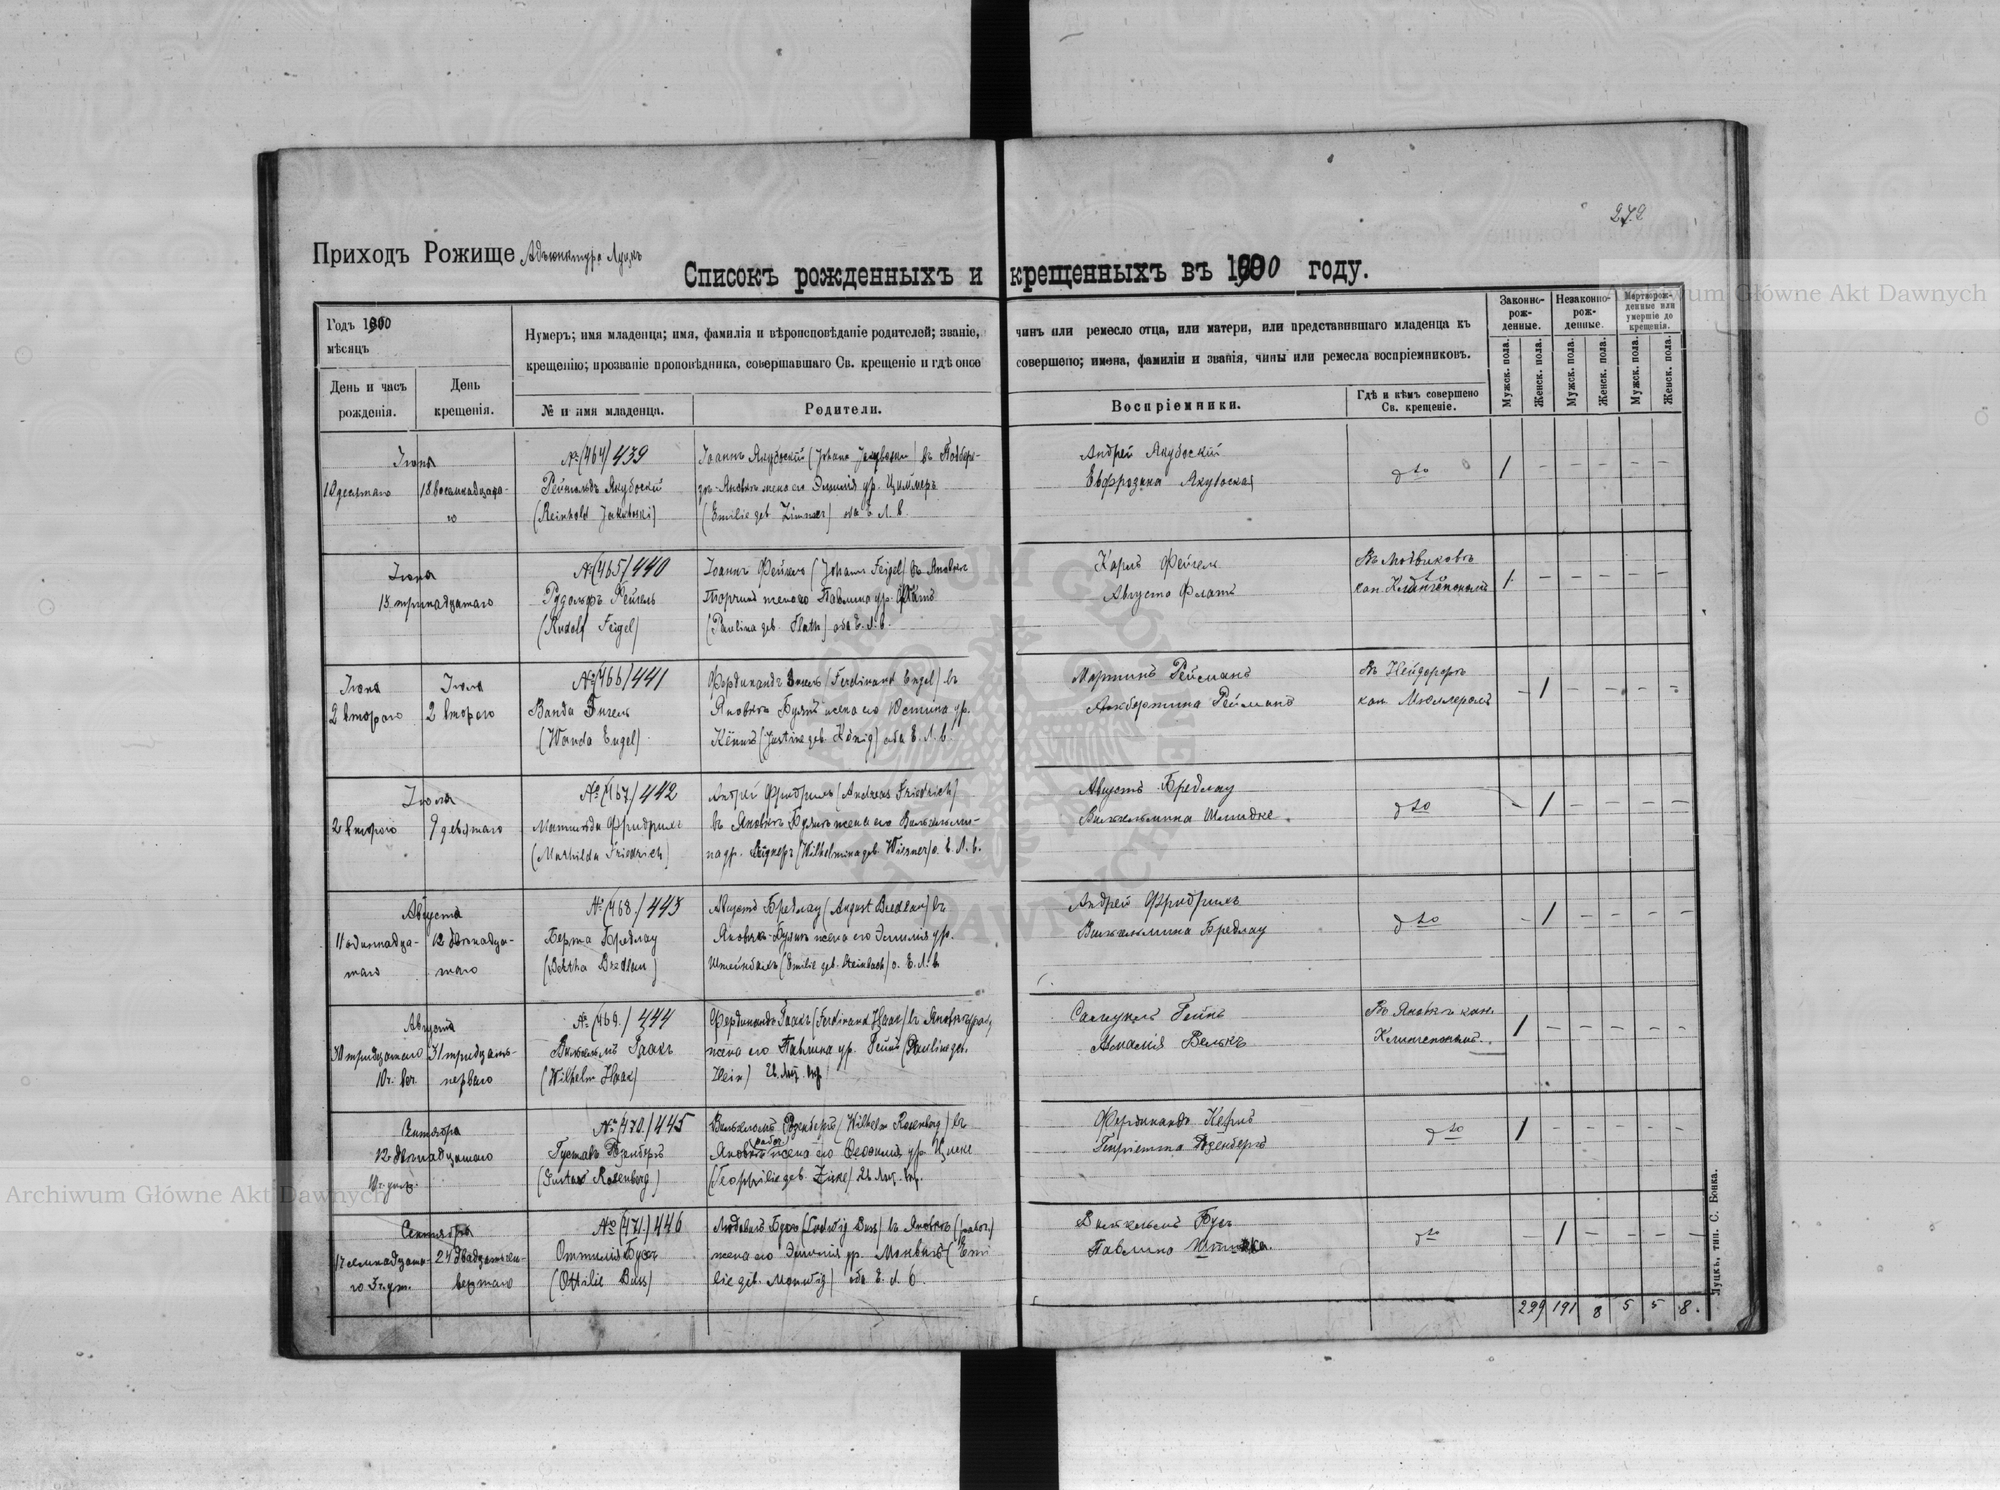 272
Приходъ Рожище Адъюнктура Луцкъ
Списокъ рожденныхъ и крещенныхъ въ 1900 году.
Годъ 1900
мѣсяцъ
День и часъ рожденія.
День крещенія.
Нумеръ; имя младенца; имя, фамилія и вѣроисповѣданіе родителей; званіе, чинъ или ремесло отца, или матери, или представившаго младенца къ
крещенію; прозваніе проповѣдника, совершавшаго Св. крещеніе и гдѣ оное совершено; имена, фамиліи и званія, чины или ремесла воспріемниковъ.
№ и имя младенца.
Родители.
Воспріемники.
Гдѣ и кѣмъ совершено Св. крещеніе.
Законно-рож-денные.
Незаконно-рож-денные.
Мертворож-денные или умершіе до крещенія.
Мужск. пола.
Женск. пола.
Мужск. пола.
Женск. пола.
Мужск. пола.
Женск. пола.
Іюня
10 десятаго
18 восемнадцата-
го
№ (464) 439
Рейнгольдъ Якубоскій
(Reinhold Jakuboski)
Іоаннъ Якубоскій (Johann
жена его Эмилія ур. Циммеръ
(Emilie geb. Zimmer) оба Е. Л. В.
Андрей Якубоскій
Евфрозина Якубоская
dto
1 – – – – –
Іюня
13 тринадцатаго
№ (465) 440
Рудольфъ Фейгель
(Rudolf Feigel)
Іоаннъ Фейгель (Johann Feigel) въ Яновкѣ
жена его Павлина ур. Флатъ
(Paulina geb. Flath) оба Е. Л. В.
Карлъ Фейгель
Августа Флатъ
кан.
1 – – – – –
Іюня
2 втораго
Іюля
2 втораго
№ (466) 441
Ванда Энгель
(Wanda Engel)
Фердинандъ Энгель (Ferdinand Engel) въ
Яновкѣ жена его Юстина ур.
Кёнигъ (Justine geb. König) оба Е. Л. В.
Мартинъ Рейманъ
Альбертина Рейманъ
Въ Нейдорфѣ
кан. Мюллеромъ
– 1 – – – –
Іюля
2 втораго
9 девятаго
№ (467) 442
Матильда Фридрихъ
(Mathilda Friedrich)
Андрей Фридрихъ (Andreas Friedrich)
въ Яновкѣ жена его Вильгельми-
на ур. (Wilhelmina geb. Wiesner) о. Е. Л. В.
Августъ Бредлау
Вильгельмина Шмидке
dto
– 1 – – – –
Августа
11 одиннадца-
таго
12 двѣнадца-
таго
№ (468) 443
Берта Бредлау
(Bertha Bredlau)
Августъ Бредлау (August Bredlau) въ
жена его Эмилія ур.
Штейнбахъ (Emilie geb. Steinbach) о. Е. Л. В.
Андрей Фридрихъ
Вильгельмина Бредлау
dto
– 1 – – – –
Августа
30 тридцатаго
10 ч. веч.
31 тридцать
перваго
№ (469) 444
Вильгельмъ Гаакъ
(Wilhelm Haak)
Фердинандъ Гаакъ (Ferdinand Haak) въ Яновкѣ
жена его Павлина ур. Гейнъ (Pauline geb.
Hein)
Самуилъ Гейнъ
Амалія Велькъ
Въ Яновкѣ кан.
1 – – – – –
Сентября
12 двѣнадцатаго
№ (470) 445
Густавъ Розенбергъ
(Gustav Rosenberg)
Вильгельмъ Розенбергъ (Wilhelm Rosenberg) въ
Яновкѣ жена его ур. Цилке
Фердинандъ
Генріетта Розенбергъ
dto
1 – – – – –
Сентября
17 семнадцата-
го 3 ч. ут.
24 двадцать чет-
вертаго
№ (471) 446
Оттилія Буссъ
(Ottilie Buss)
Людвигъ Буссъ (Ludwig Buss) въ Яновкѣ
жена его Эмилія ур. Монвигъ (Emi
lie geb. Monwig) оба Е. Л. В.
Вильгельмъ Бусъ
Павлина
dto
– 1 – – – –
299 191 8 5 5 8.
Луцкъ, тип. С. Бонка.
Archiwum Główne Akt Dawnych
Archiwum Główne Akt Dawnych
ARCHIWUM GŁÓWNE AKT DAWNYCH